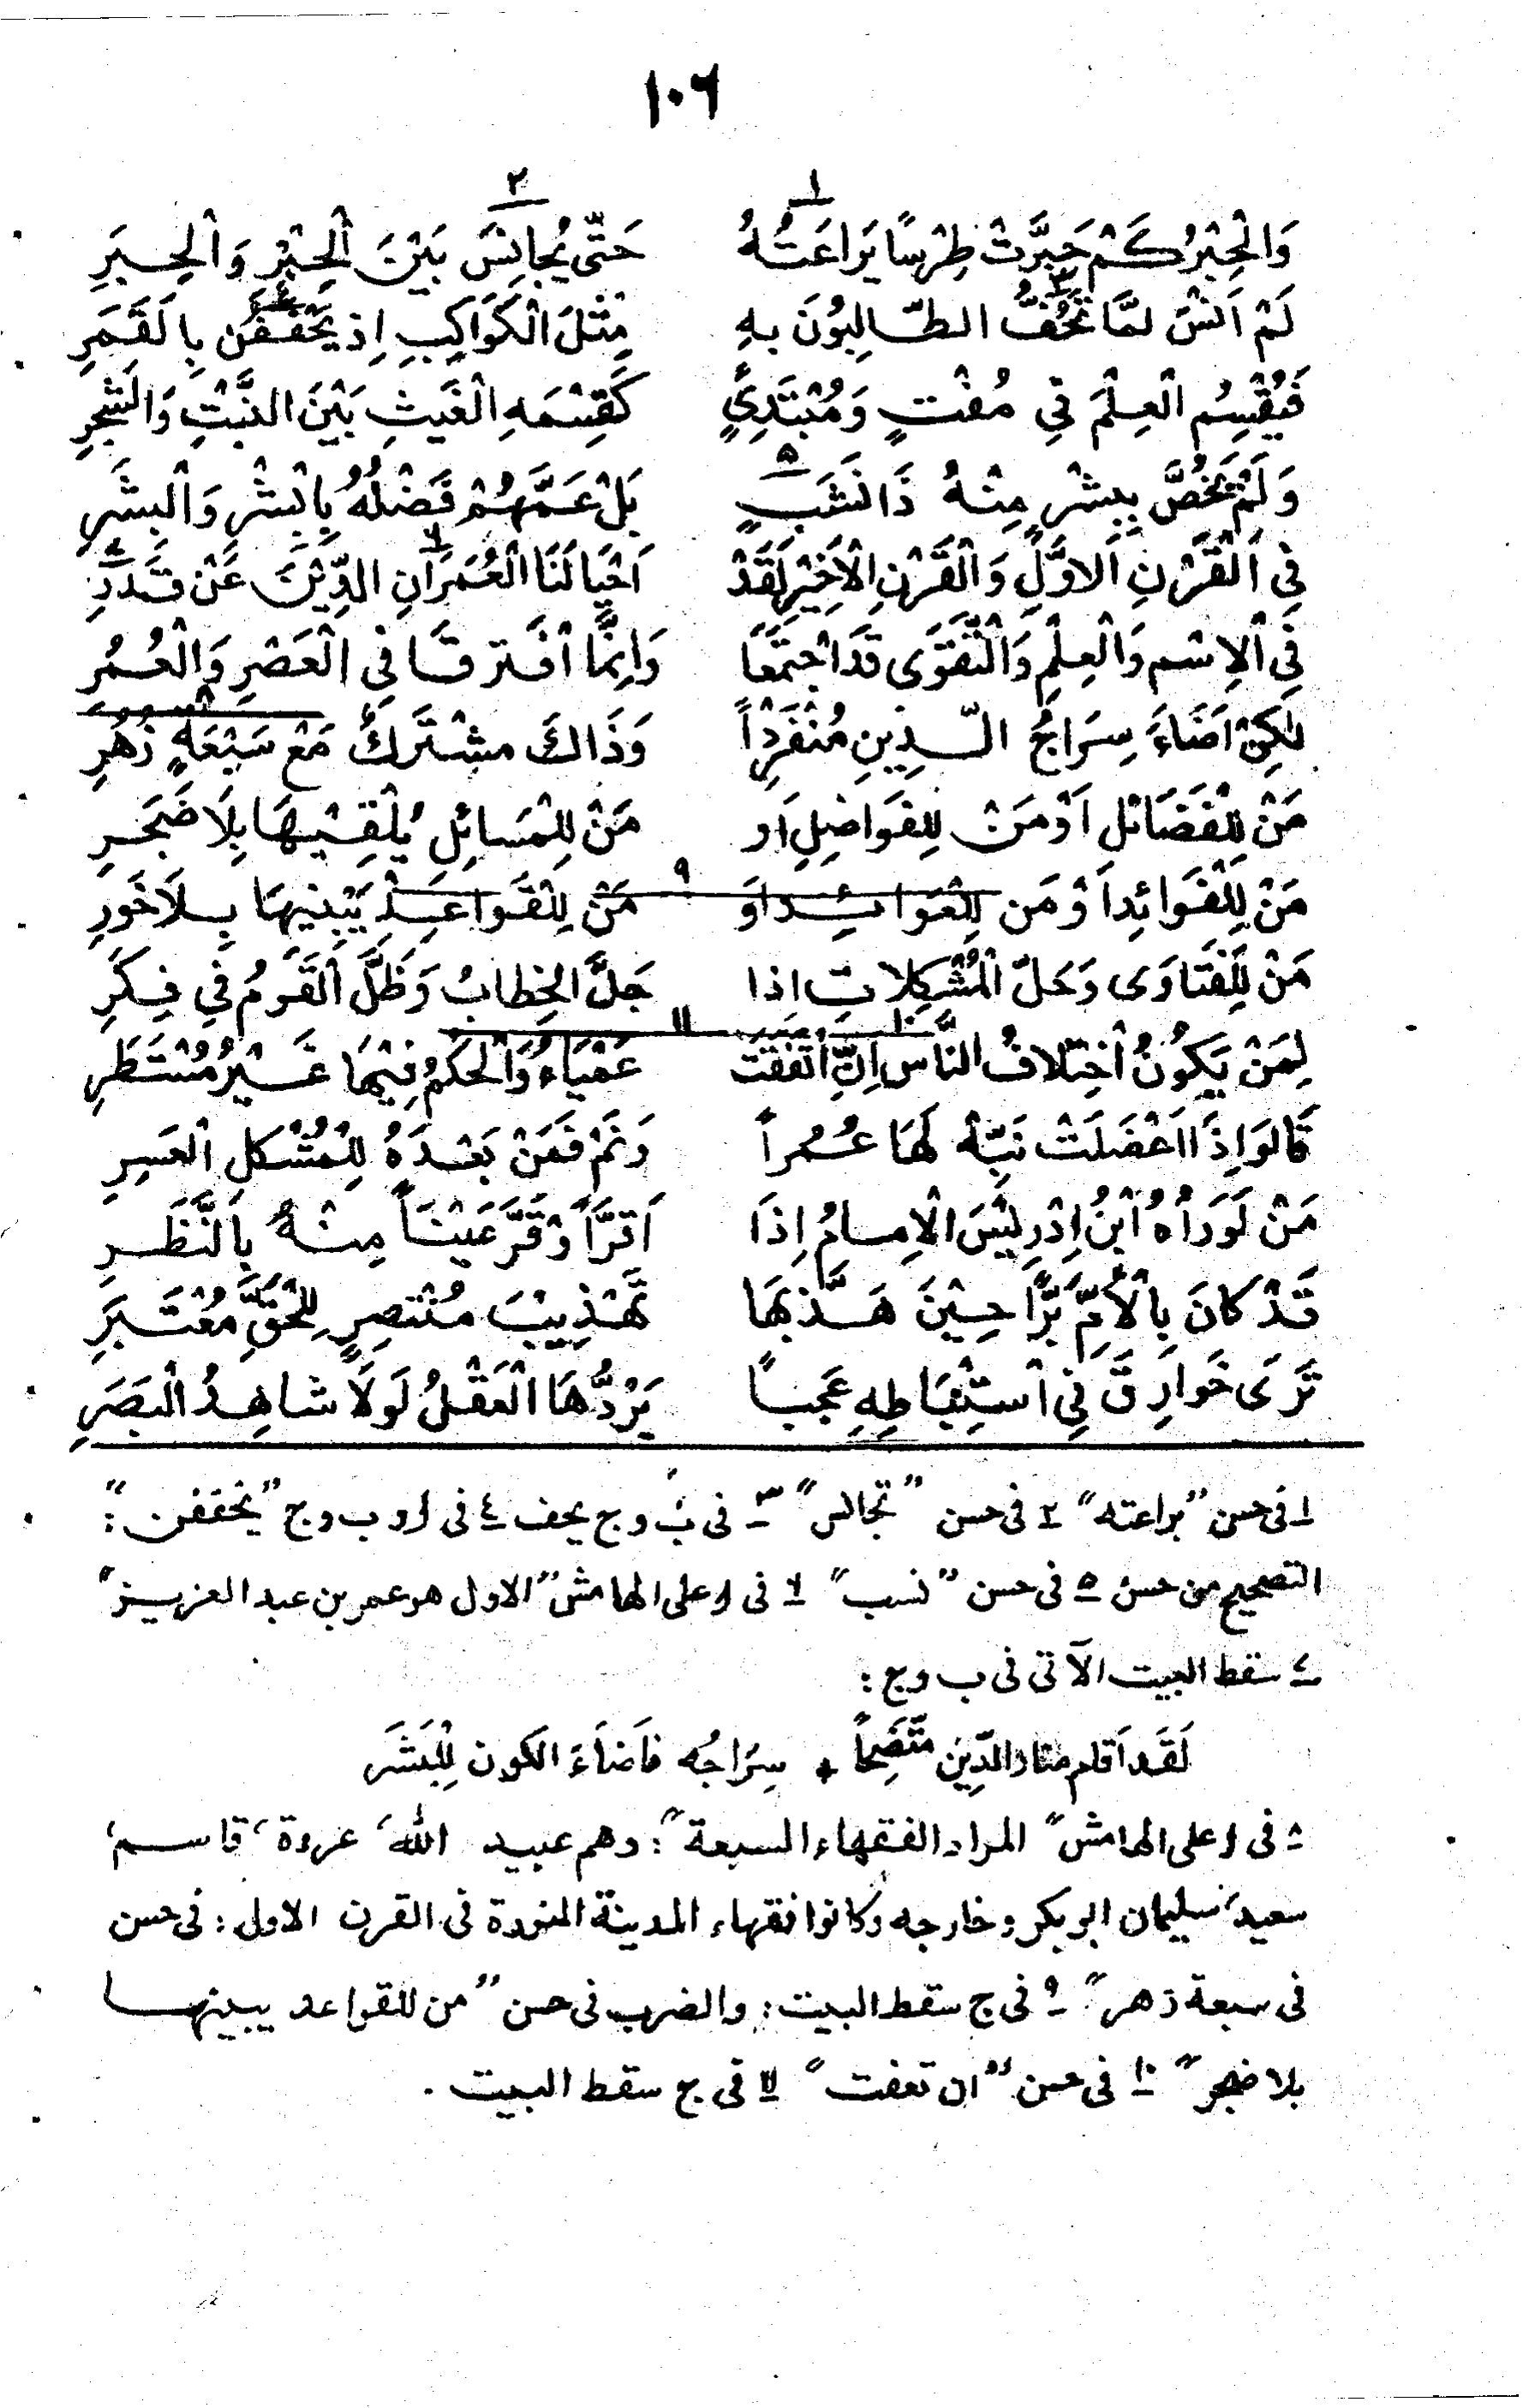 ١٠٦
وَالْحِبْرُ كَمْ حَبَّرَتْ طِرْسًا يَرَاعَتُهُ ١ حَتّٰى يُجَانِسَ ٢ بَيْنَ الْحِبْرِ وَالْحِبَرِ
لَمْ اَنْسَ لَمَّا تَحُفُّ ٣ الطّالِبُونَ بِهِ مِثْلَ الْكَوَاكِبِ اِذ يَحْفُفْنَ ٤ بِالقَمَرِ
فَيُقْسِمُ الْعِلْمَ فِي مُفْتٍ وَمُبْتَدِئٍ كَقِسْمَهِ الْغَيثِ بَيْنَ النَّبْتِ وَالشَّجَرِ
وَلَمْ يَخُصَّ بِبِشْرٍ مِنْهُ ذَا نَشَبٍ ٥ بَلْ عَمَّهُمْ فَضْلُهُ بِالْبِشْرِ وَالْبِشَرِ
فِي الْقَرْنِ الاَوَّلِ وَالْقَرْنِ الْاَخِيْرِ لَقَدْ اَحْيَا لَنَا الْعُمَرَانِ ٦ الدِّيْنَ عَنْ قَدَرِ ٧
فِي الْاِسْمِ وَالْعِلْمِ وَالتَّقْوَى قَدِ اجْتَمَعَا وَاِنَّمَا افْتَرَقَا فِي الْعَصْرِ وَالْعُمُرِ
لٰكِنْ اَضَاءَ سِرَاجُ الدِّينِ مُنْفَرِدًا وَذَاكَ مُشْتَرَكٌ مَعْ سَبْعَةٍ زُهُرِ ٨
مَنْ لِلْفَضَائل اَوْ مَنْ لِلفَوَاضِلِ اَو مَنْ لِلْمَسَائِلِ يُلْقِيْهَا بِلَا ضَجَرِ
مَنْ لِلْفَوَائِدِ اَوْ مَن لِلْعَوَائِدِ اَوْ ٩ مَنْ لِلْقَوَاعِدِ يَبْنِيهَا بِلَا خَوَرِ
مَنْ لِلْفَتَاوَى وَحَلّ الْمُشْكِلَاتِ اذا جَلَّ الخِطَابُ وَظَلَّ الْقَوْمُ فِي فِكَرِ
لِمَنْ يَكُونُ اخْتِلَافُ النَّاسِ اِنِ اتَّفَقَتْ ١٠ ١١ عَمْيَاءُ وَالْحُكْمُ فِيْهَا غَيْرُ مُنْتَظَرِ
قَالوا اِذَا اَعْضَلَتْ نَبِّهْ لَهَا عُمُراً وَنَمْ فَمَنْ بَعْدَهُ لِلْمُشْكَلِ الْعَسِرِ
مَنْ لَوْ رَاٰهُ ابْنُ اِدْرِيْسَ الْاِمَامُ اِذَا اَقَرَّ اَوْ قَرَّ عَيْنَاً مِنْهُ بِالنَّظَرِ
قَدْ كَانَ بِالْاُمِّ بَرًّا حِيْنَ هَذَّبَهَا تَهْذِيْبَ مُنْتَصِرٍ لِلْحَقِّ مُعْتَبِرِ
تَرَى خَوَارِقَ فِي اسْتِنْبَاطِهِ عَجَبًا يَرُدُّهَا الْعَقْلُ لَوْلَا شَاهِدُ الْبَصَرِ
١ فى حسن "براعته" ٢ فى حسن "تجالس" ٣ فى ب و ج يحف ٤ فى أ و ب و ج "يخففن":
التصحيح من حسن ٥ فى حسن "نسب" ٦ فى أ على الهامش "الاول هو عمر بن عبد العزيز"
٧ سقط البيت الآتى فى ب و ج:
لَقَد اَقَام منار الدِّين مُتَّضِحاً * سِرَاجُه فَاَضَاءَ الكون لِلْبَشَرِ
٨ فى أ على الهامش "المراد الفقهاء السبعة": وهم عبيد الله، عروة، قاسم،
سعيد، سليمان ابو بكر و خارجه وكانوا فقهاء المدينة المنورة فى القرن الاول: فى حسن
فى سبعة زهر" ٩ فى ج سقط البيت: والضرب فى حسن "من للقواعد يبينها
بلا ضجر" ١٠ فى حسن "ان تعفت" ١١ فى ج سقط البيت.